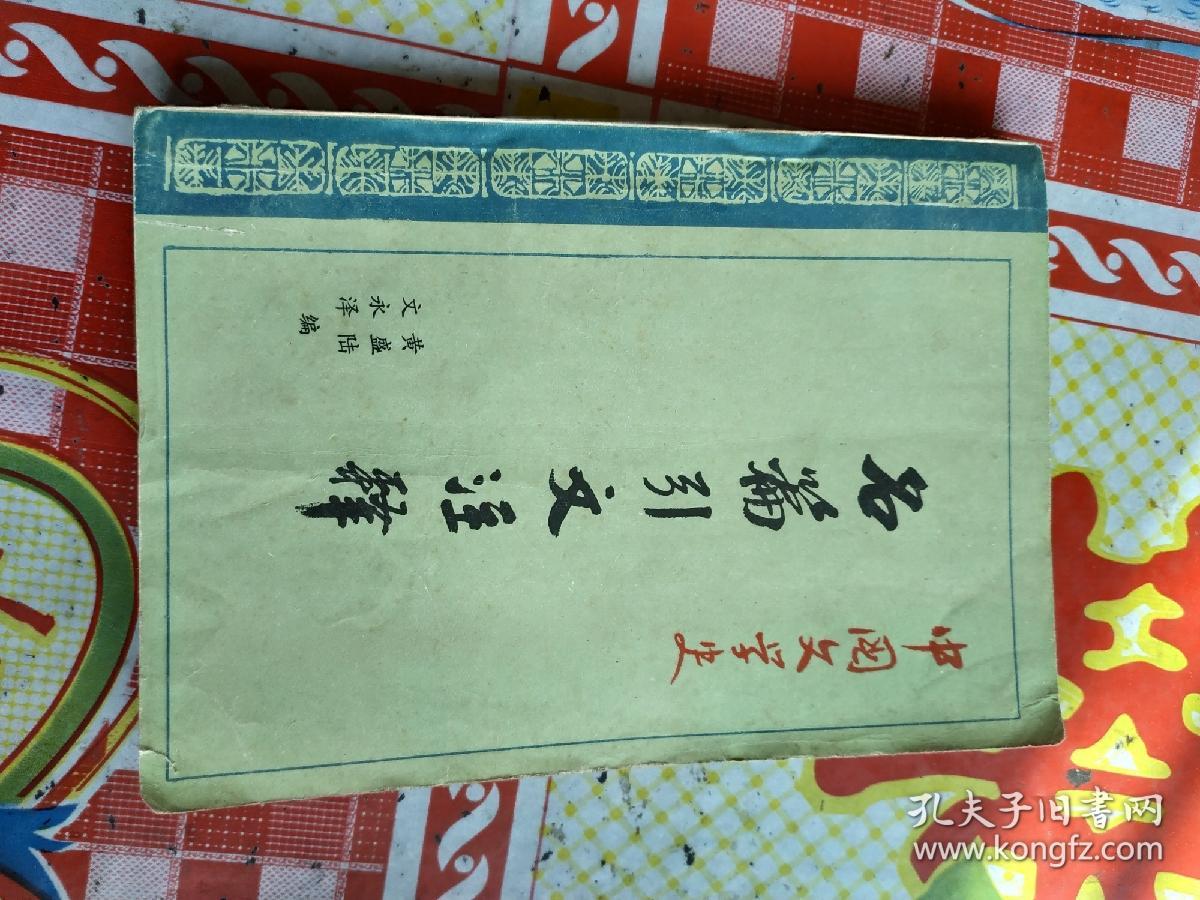 中国文学史
名篇引文注释
黄盛陆
文永泽
编
孔夫子旧書网
www.kongfz.com